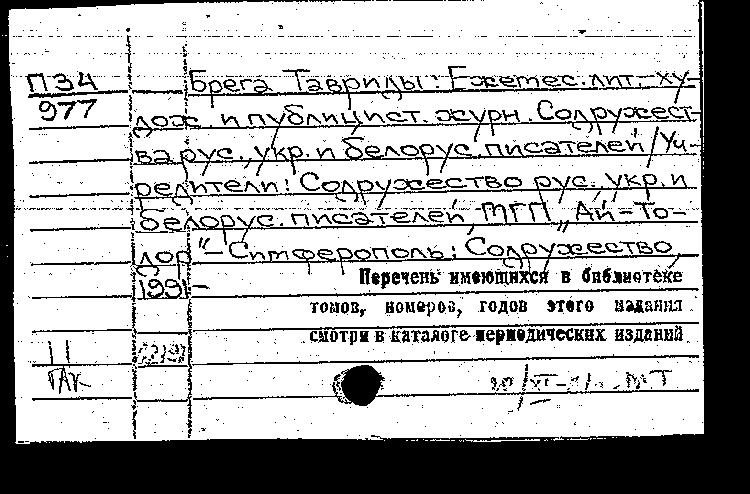 П34
977
Брега Тавриды: Ежемес. лит.-ху-
дож. и публицист. журн. Содружест-
ва рус., укр. и белорус. писателей / Уч-
редители: Содружество рус., укр. и
белорус. писателей, МГП „Ай-То-
дор“ – Симферополь: Содружество,
1991 –
Перечень имеющихся в библиотеке
томов, номеров, годов этого издания
смотри в каталоге периодических изданий